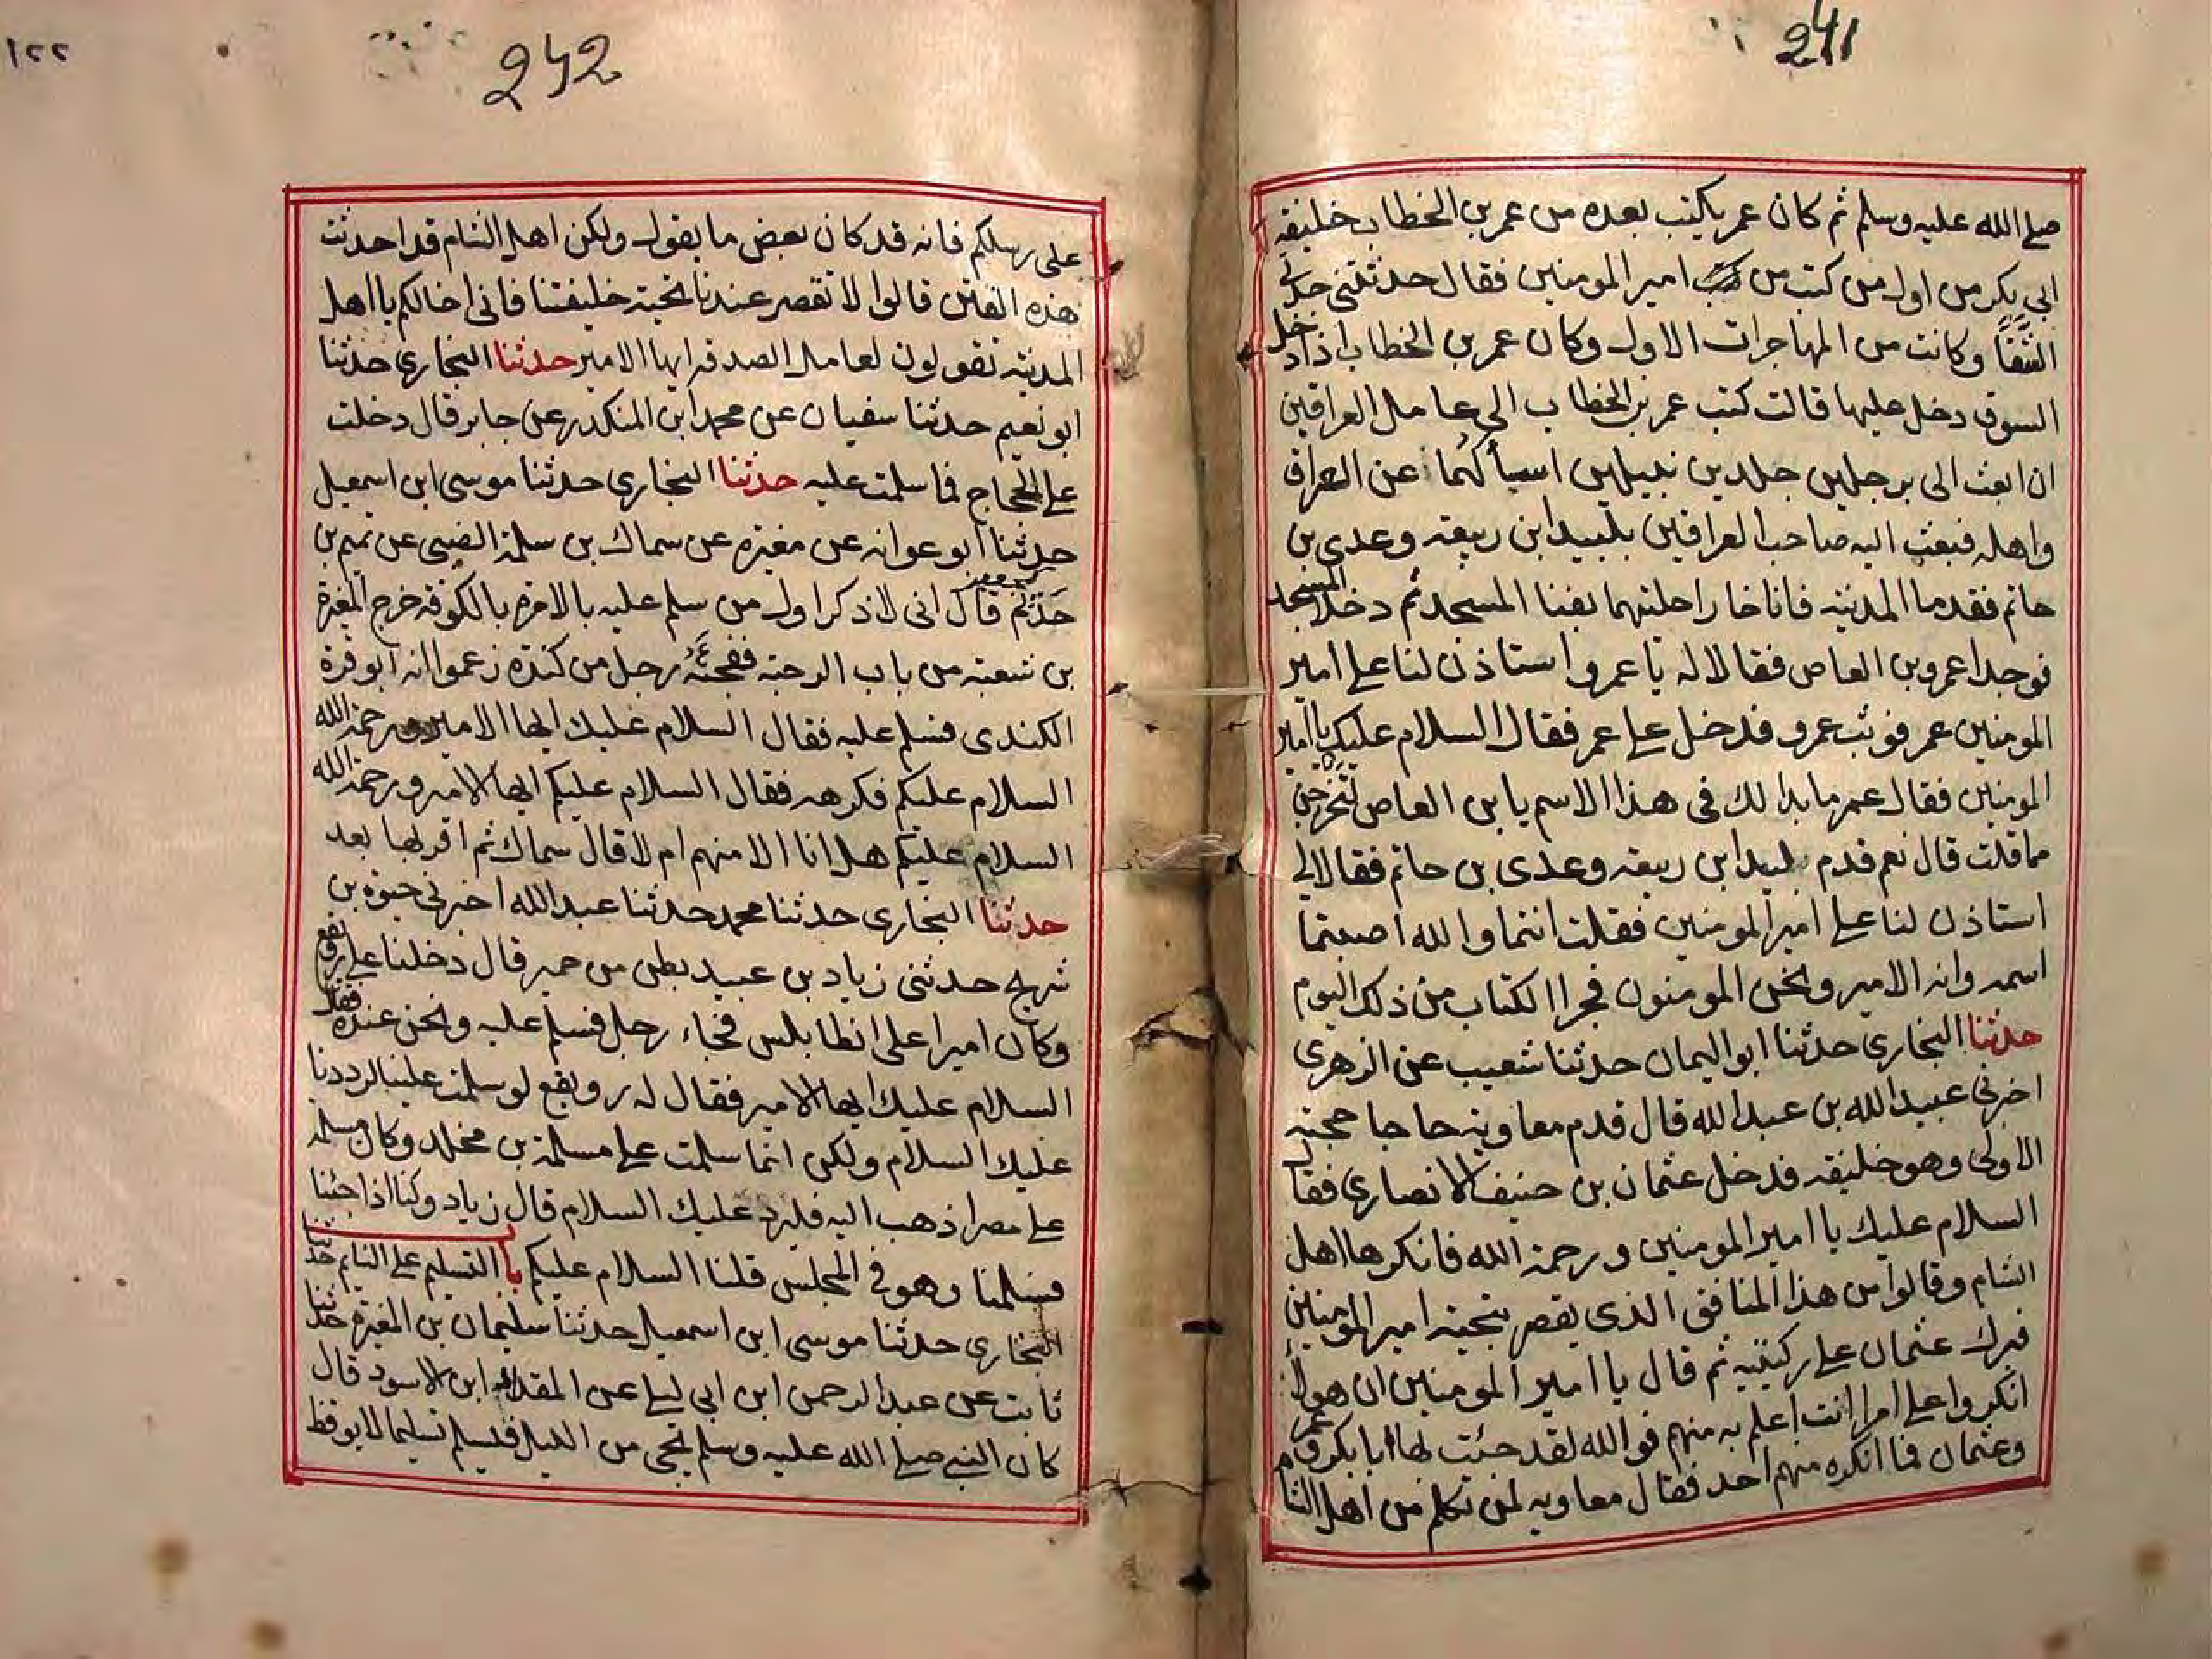 241
صلے الله عليه وسلم ثم كان عمر يكتب بعده من عمر بن الخطاب خليفة
ابي بكر من اول من كتب من امير المومنين فقال حدثتنى جدتي
الشفا وكانت من المهاجرات الاول وكان عمر بن الخطاب اذا دخل
السوق دخل عليها قالت كتب عمر بن الخطاب الى عامل العراقين
ان ابعث الى برجلين جلدين نبيلين اسألهما عن العراق
واهله فبعث اليه صاحب العراقين بلبيد ابن ربيعة وعدى بن
حاتم فقدما المدينة فاناخا راحلتهما بفنا المسجد ثم دخلا المسجد
فوجدا عمرو بن العاص فقالا له يا عمرو استاذن لنا علے امير
المومنين عمر فوثب عمرو فدخل علے عمر فقال السلام عليك يا امير
المومنين فقال عمر ما بدا لك فى هذا الاسم يا بن العاص لتخرجن
مما قلت قال نعم قدم لبيد ابن ربيعة وعدى بن حاتم فقالا لي
استاذن لنا علے امير المومنين فقلت انتما والله اصبتما
اسمه وانه الامير ونحن المومنون فجرا الكتاب من ذلك اليوم
حدثنا البخاري حدثنا ابو اليمان حدثنا شعيب عن الزهرى
اخبرني عبيد الله بن عبد الله قال قدم معاوية حاجا حجته
الاولى وهو خليفة فدخل عثمان بن حنيف الانصاري فقال
السلام عليك يا امير المومنين ورحمة الله فانكرها اهل
الشام وقالوا من هذا المنافق الذى يقصر بتحية امير المومنين
فبرك عثمان علے ركبتيه ثم قال يا امير المومنين ان هولاء
انكروا علے امرا انت اعلم به منهم فوالله لقد حئت لها ابا بكر وعمر
وعثمان فما انكره منهم احد فقال معاويه لمن تكلم من اهل الشام
242
١٢٢
على رسلكم فانه قد كان بعض ما يقول ولكن اهل الشام قد احدثت
هذه الفتن قالوا لا تقصر عندنا تحية خليفتنا فانى اخالكم يا اهل
المدينة تقولون لعامل الصدقة ايها الامير حدثنا البخاري حدثنا
ابو نعيم حدثنا سفيان عن محمد ابن المنكدر عن جابر قال دخلت
علے الحجاج فما سلمت عليه حدثنا البخاري حدثنا موسى ابن اسمعيل
حدثنا ابو عوانه عن مغيرة عن سماك بن سلمة الضبى عن تميم بن
حذثم قال انى لاذكر اول من سلم عليه بالامرة بالكوفة خرج المغيرة
بن شعبة من باب الرحبة ففجئه رجل من كندة زعموا انه ابو قرة
الكندى فسلم عليه فقال السلام عليك ايها الامير ورحمة الله
السلام عليكم فكرهه فقال السلام عليكم ايها الامير ورحمة الله
السلام عليكم هل انا الا منهم ام لا قال سماك ثم اقر بها بعد
حدثنا البخارى حدثنا محمد حدثنا عبد الله اخبرني حيوة بن
شريح حدثنى زياد بن عبيد بطن من حمير قال دخلنا علے رويفع
وكان اميرا على انطابلس فجاء رجل فسلم عليه ونحن عنده فقال
السلام عليك ايها الامير فقال له رويفع لو سلمت علينا لرددنا
عليك السلام ولكن انما سلمت علے مسلمة بن مخلد وكان مسلمة
علے مصر اذهب اليه فليرد عليك السلام قال زياد وكنا اذا جئنا
فسلمنا وهو في المجلس قلنا السلام عليكم باب التسليم علے النايم حدثنا
البخارى حدثنا موسى ابن اسمعيل حدثنا سليمان بن المغيرة حدثنا
ثابت عن عبد الرحمن ابن ابى ليلے عن المقداد ابن الاسود قال
كان النبي صلے الله عليه وسلم يجى من الليل فيسلم تسليما لا يوقظ